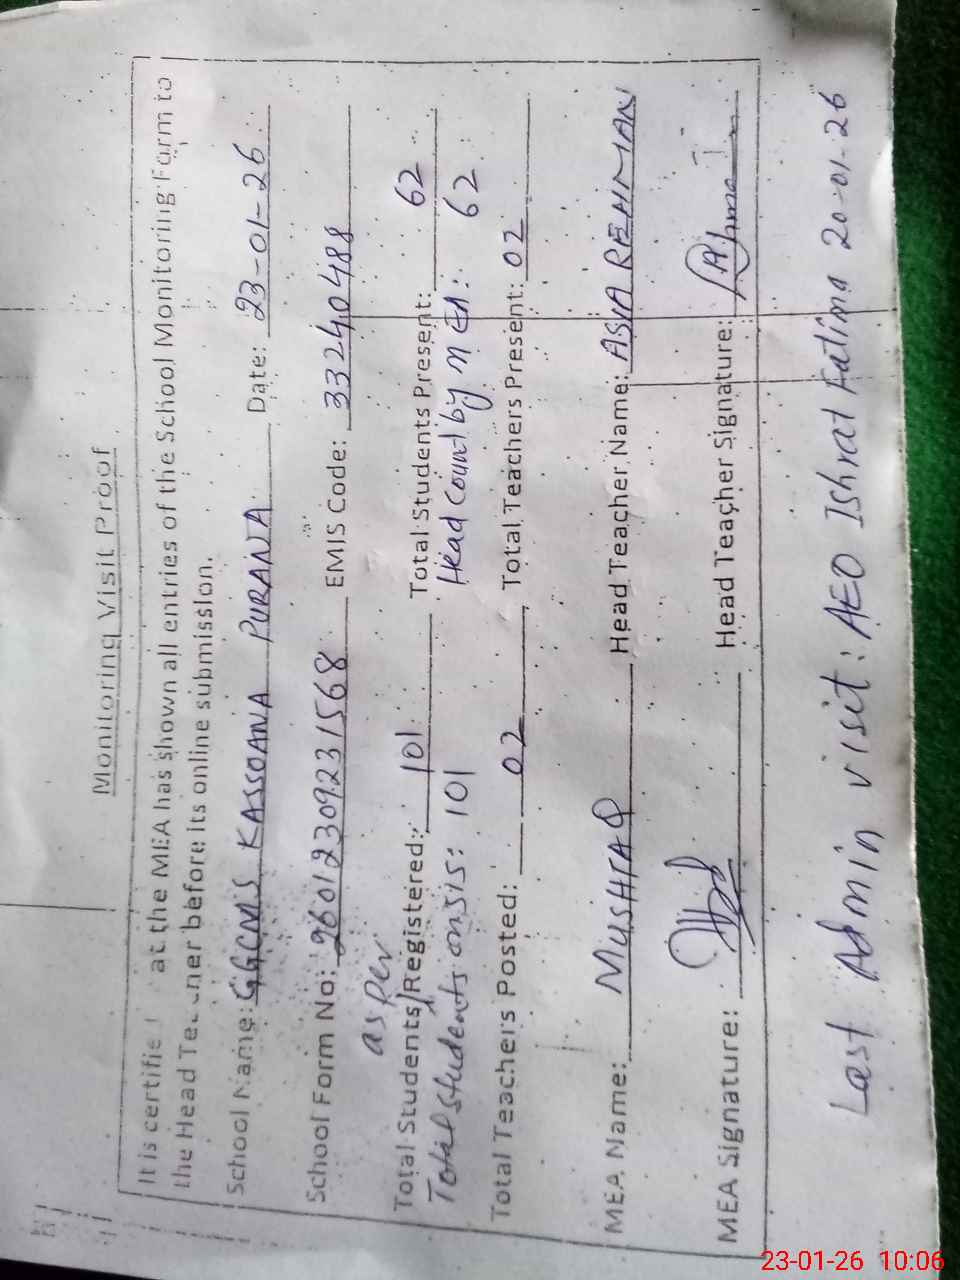 Monitoring Visit Proof
It is certifie at the MEA has shown all entries of the School Monitoring Form to
the Head Te ner before its online submission.
School Name: GGCMS KASSOANA PURANA Date: 23-01-26
School Form No: 2601230923 1568 EMIS Code: 33240488
as per
Total Students Registered: 101 Total Students Present: 62
Total students on SIS: 101 Head Count by MEA: 62
Total Teachers Posted: 02 Total Teachers Present: 02
MEA Name: MUSHTAQ Head Teacher Name: ASIA REHMAN
MEA Signature: Head Teacher Signature:
Last Admin visit: AEO Ishrat Fatima 20-01-26
23-01-26 10:06